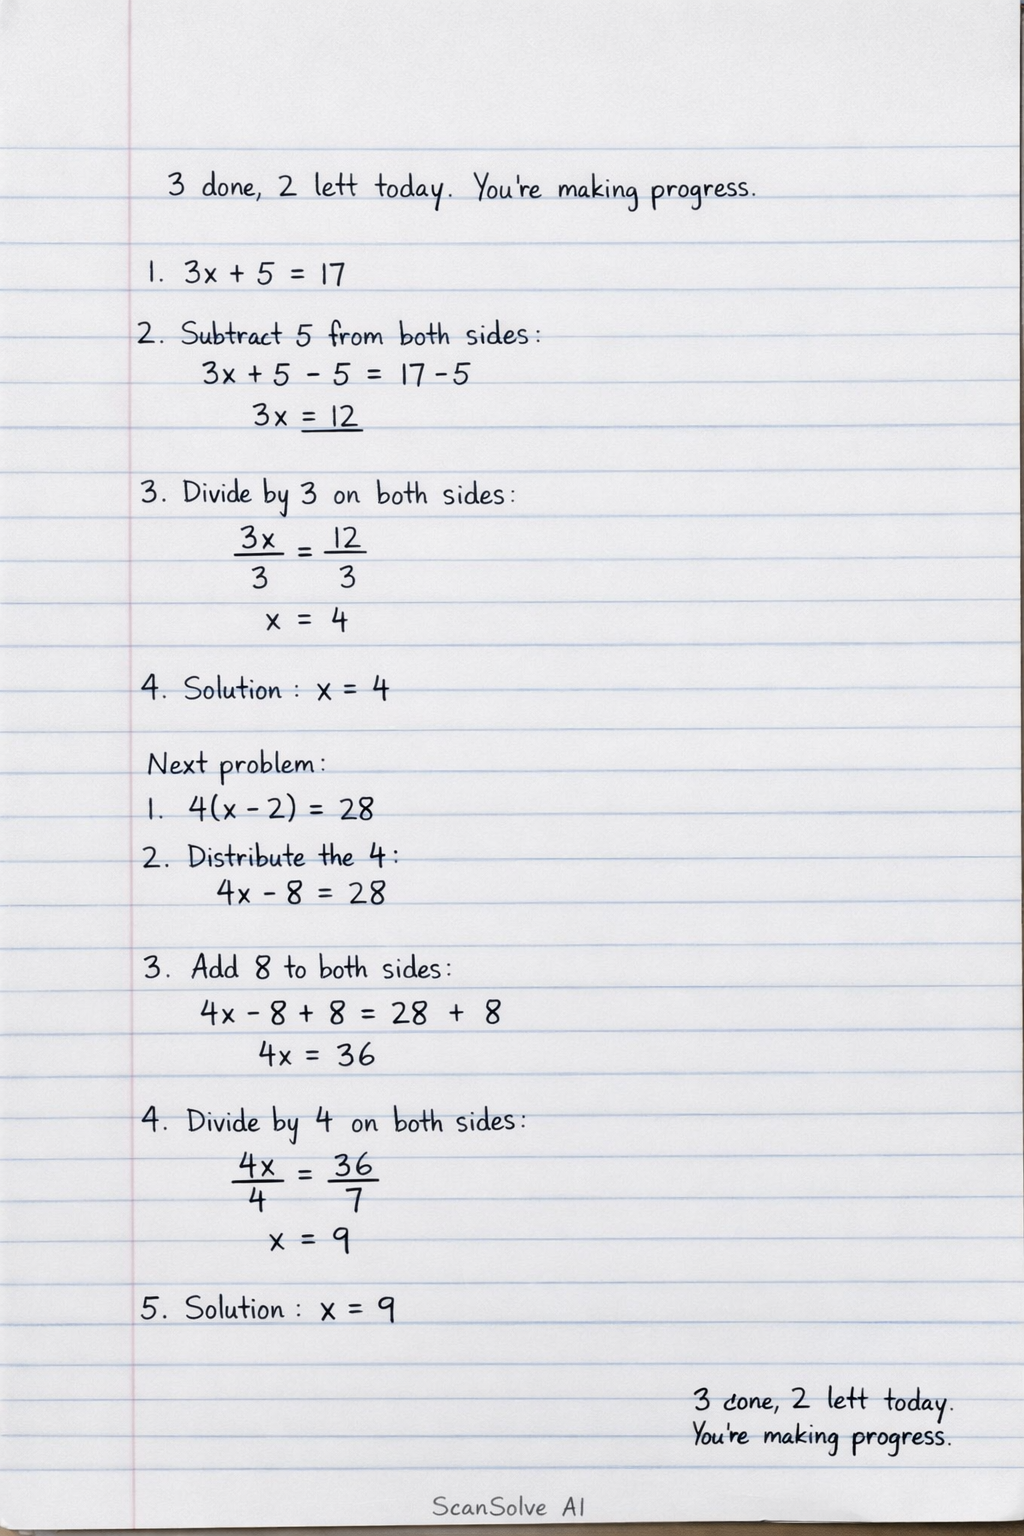 3 done, 2 left today. You're making progress.
1. 3x + 5 = 17
2. Subtract 5 from both sides:
3x + 5 - 5 = 17 - 5
3x = 12
3. Divide by 3 on both sides:
3x/3 = 12/3
x = 4
4. Solution : x = 4
Next problem:
1. 4(x - 2) = 28
2. Distribute the 4:
4x - 8 = 28
3. Add 8 to both sides:
4x - 8 + 8 = 28 + 8
4x = 36
4. Divide by 4 on both sides:
4x/4 = 36/7
x = 9
5. Solution : x = 9
3 cone, 2 left today.
You're making progress.
ScanSolve AI